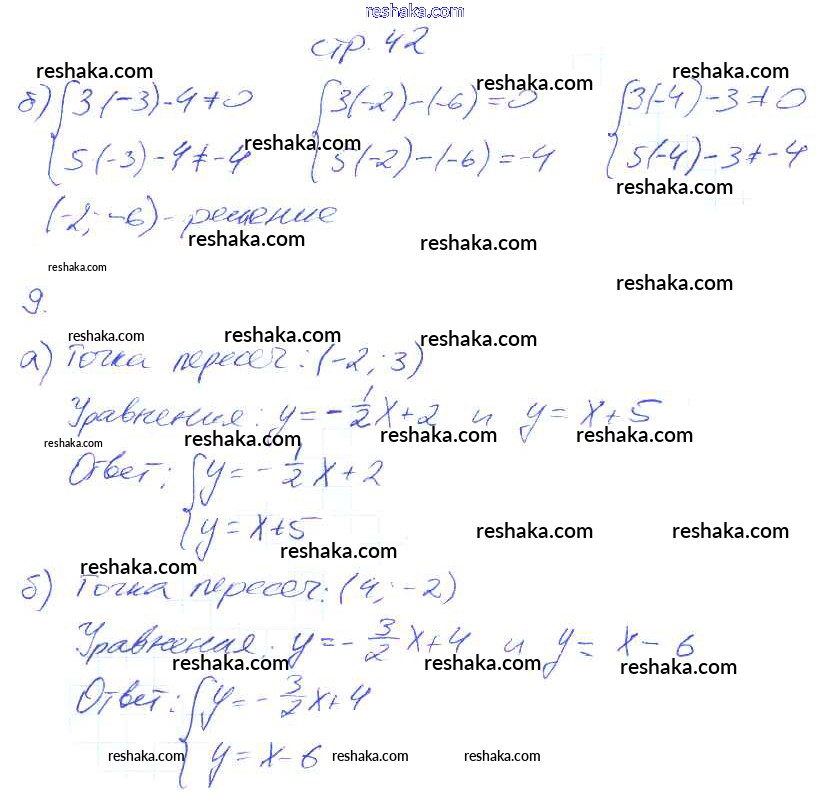 reshaka.com
стр. 42
reshaka.com reshaka.com reshaka.com
б) { 3·(-3)-4≠0 { 3(-2)-(-6)=0 { 3(-4)-3≠0
reshaka.com
5·(-3)-4≠-4 5(-2)-(-6)=-4 5(-4)-3≠-4
reshaka.com
(-2; -6) - решение
reshaka.com reshaka.com
reshaka.com reshaka.com
9.
reshaka.com reshaka.com reshaka.com
а) Точка пересеч: (-2; 3)
Уравнения: y=-1/2x+2 и y=x+5
reshaka.com reshaka.com reshaka.com
Ответ: { y=-1/2x+2
y=x+5
reshaka.com reshaka.com
reshaka.com
reshaka.com
б) Точка пересеч: (4; -2)
Уравнения: y=-3/2x+4 и y=x-6
reshaka.com reshaka.com reshaka.com
Ответ: { y=-3/2x+4
y=x-6
reshaka.com reshaka.com reshaka.com